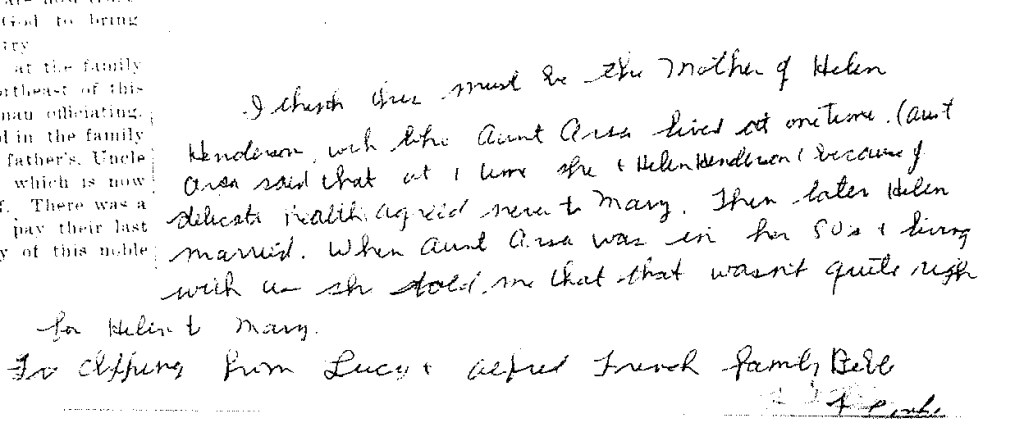 God to bring
try
at the family
ortheast of this
man officiating.
d in the family
father's, Uncle
which is now
f. There was a
pay their last
y of this noble
I think this must be the Mother of Helen
Henderson, with who Aunt Arsa lived at one time. (aunt
Arsa said that at 1 time she + Helen Henderson (because of
delicate health agreed never to Marry. Then later Helen
married. When Aunt Arsa was in her 80's + living
with us she told me that that wasn't quite right
for Helen to Marry.
clipping from Lucy + Alfred French family Bible